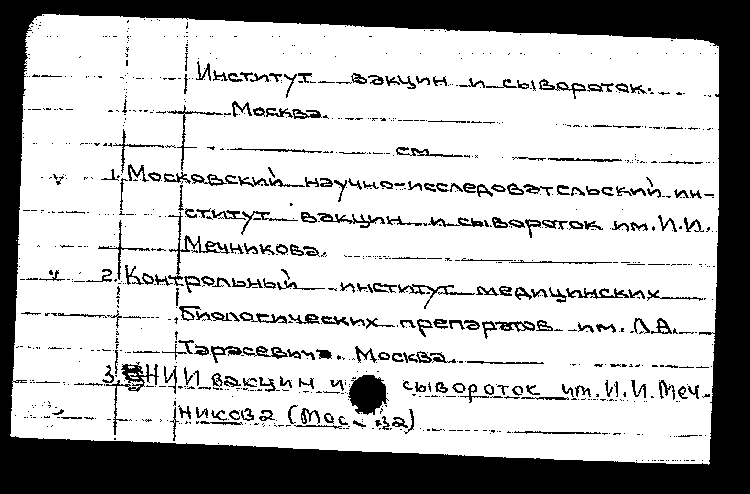 Институт вакцин и сывороток.
Москва.
см
v 1. Московский научно-исследовательский ин-
ститут вакцин и сывороток им. И.И.
Мечникова.
ч 2. Контрольный институт медицинских
биологических препаратов им. Л.А.
Тарасевича. Москва.
3. НИИ вакцин и сывороток им. И.И. Меч-
никова (Москва)